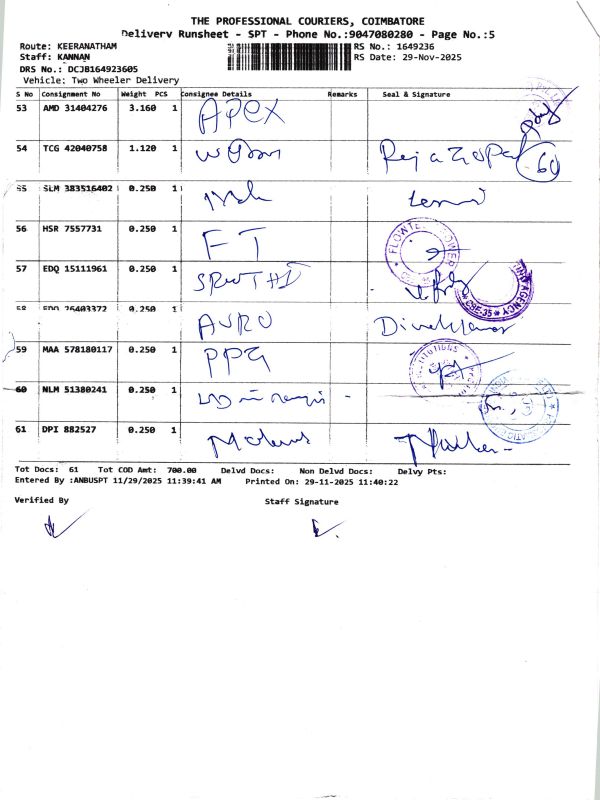 THE PROFESSIONAL COURIERS, COIMBATORE
Delivery Runsheet - SPT - Phone No.:9047080280 - Page No.:5
Route: KEERANATHAM
RS No.: 1649236
Staff: KANNAN
RS Date: 29-Nov-2025
DRS No.: DCJB164923605
Vehicle: Two Wheeler Delivery
S No Consignment No Weight PCS Consignee Details Remarks Seal & Signature
53 AMD 31404276 3.160 1 APEX
54 TCG 42040758 1.120 1
55 SLM 383516402 0.250 1
56 HSR 7557731 0.250 1 FT
57 EDQ 15111961 0.250 1 SRUTHI
58 EDQ 26403372 0.250 1 AURO
59 MAA 578180117 0.250 1 PPG
60 NLM 51380241 0.250 1
61 DPI 882527 0.250 1
Tot Docs: 61 Tot COD Amt: 700.00 Delvd Docs: Non Delvd Docs: Delvy Pts:
Entered By :ANBUSPT 11/29/2025 11:39:41 AM Printed On: 29-11-2025 11:40:22
Verified By Staff Signature